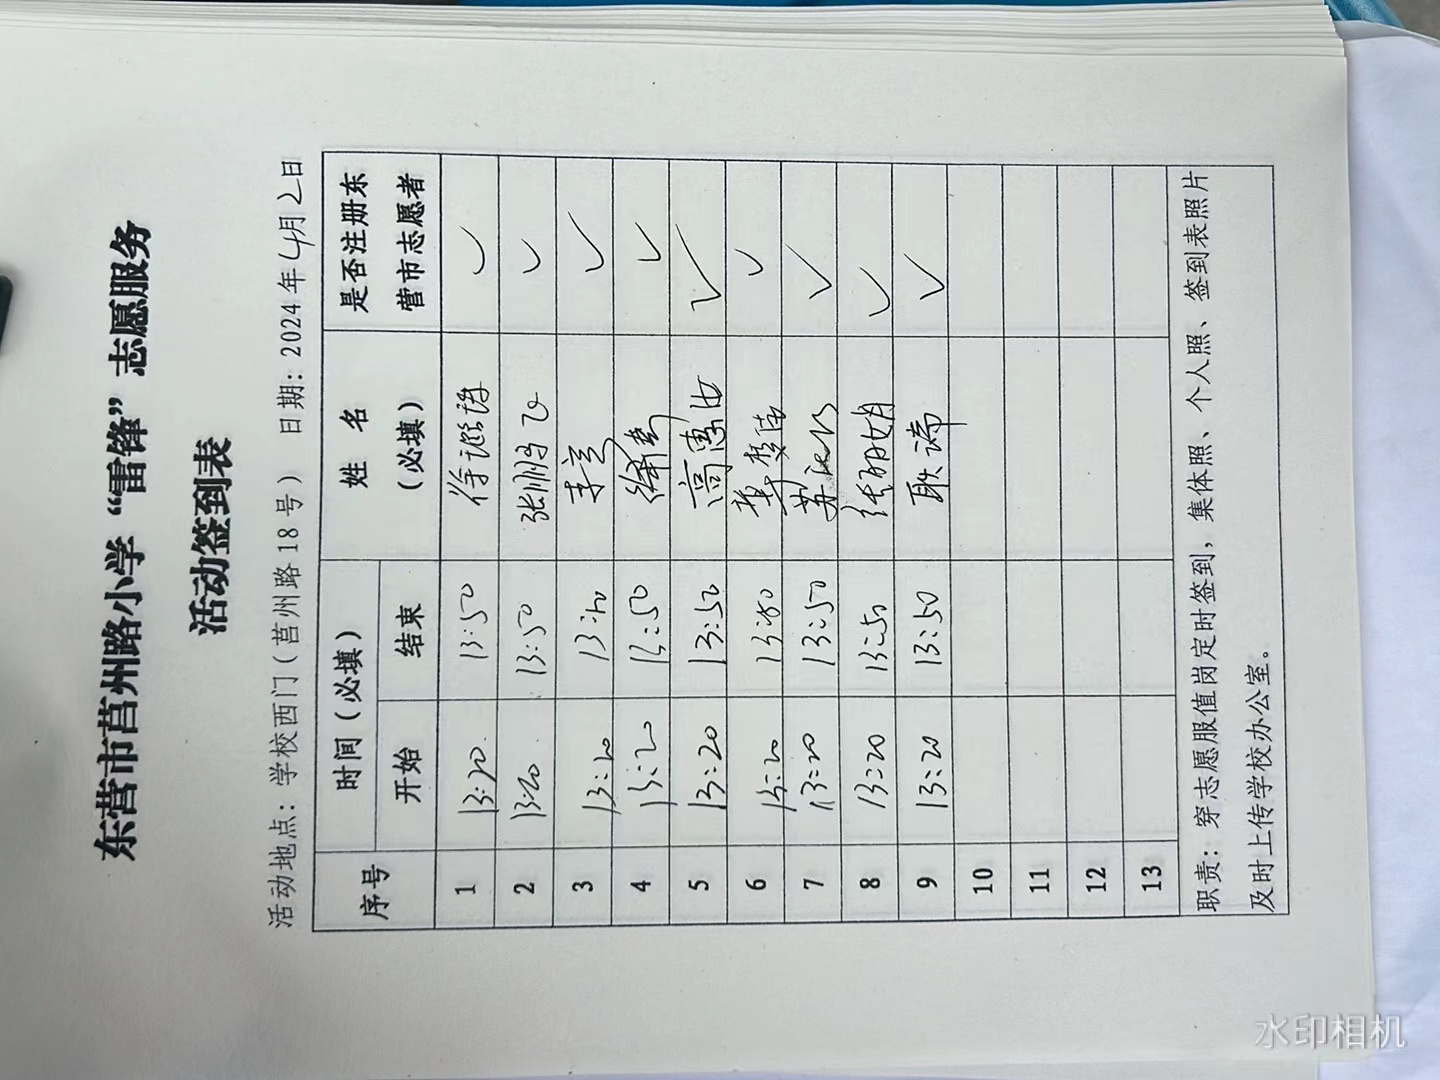 东营市莒州路小学“雷锋”志愿服务
活动签到表
活动地点：学校西门（莒州路18号） 日期：2024年4月2日
序号 时间（必填） 姓 名（必填） 是否注册东营市志愿者
开始 结束
1 13:20 13:50 徐 ✓
2 13:20 13:50 张 ✓
3 13:20 13:50 李 ✓
4 13:20 13:50 ✓
5 13:20 13:50 高惠 ✓
6 13:20 13:50 ✓
7 13:20 13:50 苏 ✓
8 13:20 13:50 ✓
9 13:20 13:50 耿 ✓
10
11
12
13
职责：穿志愿服值岗定时签到，集体照、个人照、签到表照片
及时上传学校办公室。
水印相机